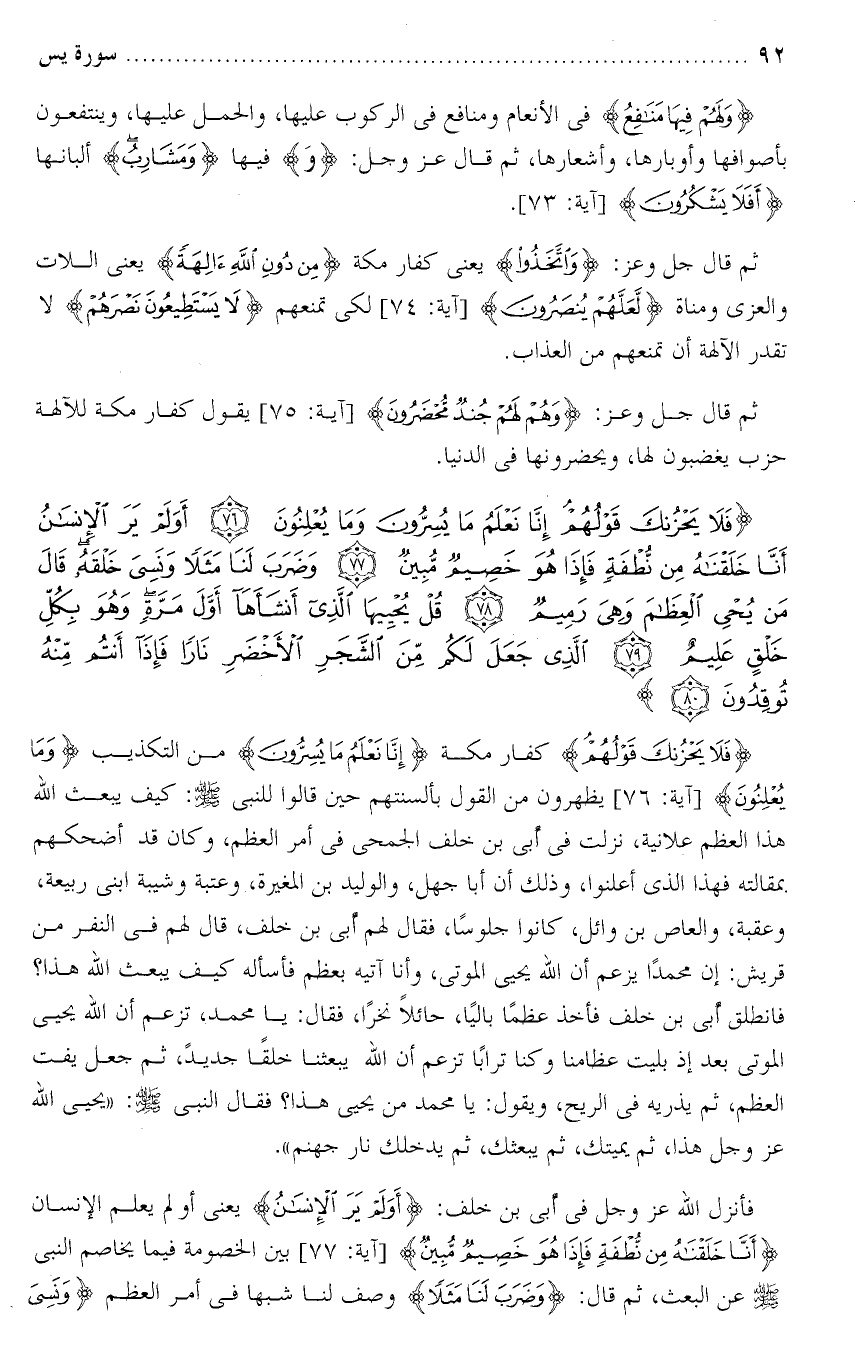 ٩٢ ........................................................................ سورة يس
﴿وَلَهُمْ فِيهَا مَنَافِعُ﴾ فى الأنعام ومنافع فى الركوب عليها، والحمل عليها، وينتفعون
بأصوافها وأوبارها، وأشعارها، ثم قال عز وجل: ﴿وَ﴾ فيها ﴿وَمَشَارِبُۖ﴾ ألبانها
﴿أَفَلَا يَشْكُرُونَ﴾ [آية: ٧٣].
ثم قال جل وعز: ﴿وَٱتَّخَذُواْ﴾ يعنى كفار مكة ﴿مِن دُونِ ٱللَّهِ ءَالِهَةً﴾ يعنى اللات
والعزى ومناة ﴿لَّعَلَّهُمْ يُنصَرُونَ﴾ [آية: ٧٤] لكى تمنعهم ﴿لَا يَسْتَطِيعُونَ نَصْرَهُمْ﴾ لا
تقدر الآلهة أن تمنعهم من العذاب.
ثم قال جل وعز: ﴿وَهُمْ لَهُمْ جُندٌ مُّحْضَرُونَ﴾ [آية: ٧٥] يقول كفار مكة للآلهة
حزب يغضبون لها، ويحضرونها فى الدنيا.
﴿فَلَا يَحْزُنكَ قَوْلُهُمْۘ إِنَّا نَعْلَمُ مَا يُسِرُّونَ وَمَا يُعْلِنُونَ ٧٦ أَوَلَمْ يَرَ ٱلْإِنسَٰنُ
أَنَّا خَلَقْنَٰهُ مِن نُّطْفَةٍ فَإِذَا هُوَ خَصِيمٌ مُّبِينٌ ٧٧ وَضَرَبَ لَنَا مَثَلًا وَنَسِىَ خَلْقَهُۥۖ قَالَ
مَن يُحْىِ ٱلْعِظَٰمَ وَهِىَ رَمِيمٌ ٧٨ قُلْ يُحْيِيهَا ٱلَّذِىٓ أَنشَأَهَآ أَوَّلَ مَرَّةٍۖ وَهُوَ بِكُلِّ
خَلْقٍ عَلِيمٌ ٧٩ ٱلَّذِى جَعَلَ لَكُم مِّنَ ٱلشَّجَرِ ٱلْأَخْضَرِ نَارًا فَإِذَآ أَنتُم مِّنْهُ
تُوقِدُونَ ٨٠﴾
﴿فَلَا يَحْزُنكَ قَوْلُهُمْۘ﴾ كفار مكة ﴿إِنَّا نَعْلَمُ مَا يُسِرُّونَ﴾ من التكذيب ﴿وَمَا
يُعْلِنُونَ﴾ [آية: ٧٦] يظهرون من القول بألسنتهم حين قالوا للنبى ﷺ: كيف يبعث الله
هذا العظم علانية، نزلت فى أبى بن خلف الجمحى فى أمر العظم، وكان قد أضحكهم
بمقالته فهذا الذى أعلنوا، وذلك أن أبا جهل، والوليد بن المغيرة، وعتبة وشيبة ابنى ربيعة،
وعقبة، والعاص بن وائل، كانوا جلوسًا، فقال لهم أبى بن خلف، قال لهم فى النفر من
قريش: إن محمدًا يزعم أن الله يحيى الموتى، وأنا آتيه بعظم فأسأله كيف يبعث الله هذا؟
فانطلق أبى بن خلف فأخذ عظمًا باليًا، حائلاً نخرًا، فقال: يا محمد، تزعم أن الله يحيى
الموتى بعد إذ بليت عظامنا وكنا ترابًا تزعم أن الله يبعثنا خلقًا جديدً، ثم جعل يفت
العظم، ثم يذريه فى الريح، ويقول: يا محمد من يحيى هذا؟ فقال النبى ﷺ: «يحيى الله
عز وجل هذا، ثم يميتك، ثم يبعثك، ثم يدخلك نار جهنم».
فأنزل الله عز وجل فى أبى بن خلف: ﴿أَوَلَمْ يَرَ ٱلْإِنسَٰنُ﴾ يعنى أو لم يعلم الإنسان
﴿أَنَّا خَلَقْنَٰهُ مِن نُّطْفَةٍ فَإِذَا هُوَ خَصِيمٌ مُّبِينٌ﴾ [آية: ٧٧] بين الخصومة فيما يخاصم النبى
ﷺ عن البعث، ثم قال: ﴿وَضَرَبَ لَنَا مَثَلًا﴾ وصف لنا شبها فى أمر العظم ﴿وَنَسِىَ